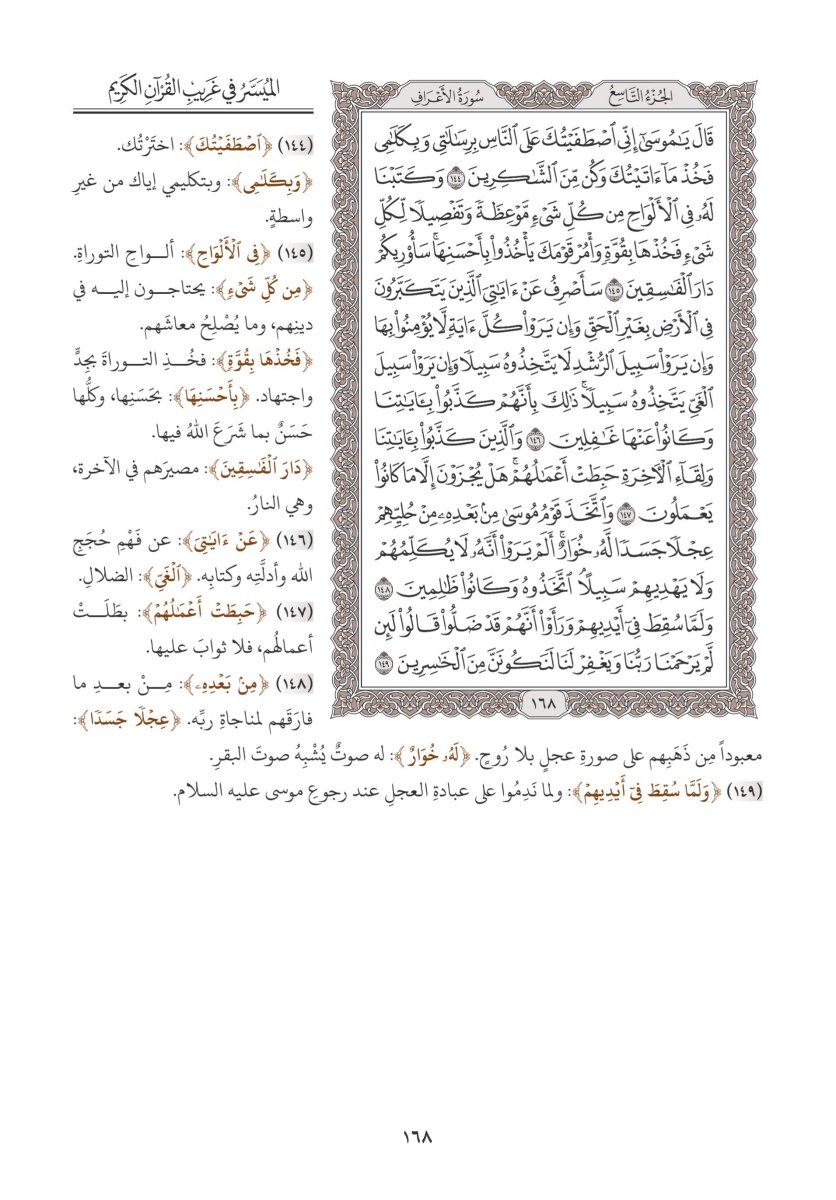 الجُزْءُ التَّاسِعُ
سُورَةُ الأَعْرَافِ
قَالَ يَٰمُوسَىٰٓ إِنِّي ٱصۡطَفَيۡتُكَ عَلَى ٱلنَّاسِ بِرِسَٰلَٰتِي وَبِكَلَٰمِي
فَخُذۡ مَآ ءَاتَيۡتُكَ وَكُن مِّنَ ٱلشَّٰكِرِينَ ١٤٤ وَكَتَبۡنَا
لَهُۥ فِي ٱلۡأَلۡوَاحِ مِن كُلِّ شَيۡءٖ مَّوۡعِظَةٗ وَتَفۡصِيلٗا لِّكُلِّ
شَيۡءٖ فَخُذۡهَا بِقُوَّةٖ وَأۡمُرۡ قَوۡمَكَ يَأۡخُذُواْ بِأَحۡسَنِهَاۚ سَأُوْرِيكُمۡ
دَارَ ٱلۡفَٰسِقِينَ ١٤٥ سَأَصۡرِفُ عَنۡ ءَايَٰتِيَ ٱلَّذِينَ يَتَكَبَّرُونَ
فِي ٱلۡأَرۡضِ بِغَيۡرِ ٱلۡحَقِّ وَإِن يَرَوۡاْ كُلَّ ءَايَةٖ لَّا يُؤۡمِنُواْ بِهَا
وَإِن يَرَوۡاْ سَبِيلَ ٱلرُّشۡدِ لَا يَتَّخِذُوهُ سَبِيلٗا وَإِن يَرَوۡاْ سَبِيلَ
ٱلۡغَيِّ يَتَّخِذُوهُ سَبِيلٗاۚ ذَٰلِكَ بِأَنَّهُمۡ كَذَّبُواْ بِـَٔايَٰتِنَا
وَكَانُواْ عَنۡهَا غَٰفِلِينَ ١٤٦ وَٱلَّذِينَ كَذَّبُواْ بِـَٔايَٰتِنَا
وَلِقَآءِ ٱلۡأٓخِرَةِ حَبِطَتۡ أَعۡمَٰلُهُمۡۚ هَلۡ يُجۡزَوۡنَ إِلَّا مَا كَانُواْ
يَعۡمَلُونَ ١٤٧ وَٱتَّخَذَ قَوۡمُ مُوسَىٰ مِنۢ بَعۡدِهِۦ مِنۡ حُلِيِّهِمۡ
عِجۡلٗا جَسَدٗا لَّهُۥ خُوَارٌۚ أَلَمۡ يَرَوۡاْ أَنَّهُۥ لَا يُكَلِّمُهُمۡ
وَلَا يَهۡدِيهِمۡ سَبِيلًاۘ ٱتَّخَذُوهُ وَكَانُواْ ظَٰلِمِينَ ١٤٨
وَلَمَّا سُقِطَ فِيٓ أَيۡدِيهِمۡ وَرَأَوۡاْ أَنَّهُمۡ قَدۡ ضَلُّواْ قَالُواْ لَئِن
لَّمۡ يَرۡحَمۡنَا رَبُّنَا وَيَغۡفِرۡ لَنَا لَنَكُونَنَّ مِنَ ٱلۡخَٰسِرِينَ ١٤٩
١٦٨
المُيَسَّرُ في غَرِيبِ القُرْآنِ الكَرِيمِ
(١٤٤) ﴿ٱصۡطَفَيۡتُكَ﴾: اختَرْتُك.
﴿وَبِكَلَٰمِي﴾: وبتكليمي إياك من غيرِ
واسطةٍ.
(١٤٥) ﴿فِي ٱلۡأَلۡوَاحِ﴾: ألواحِ التوراةِ.
﴿مِن كُلِّ شَيۡءٖ﴾: يحتاجون إليه في
دينِهم، وما يُصْلِحُ معاشَهم.
﴿فَخُذۡهَا بِقُوَّةٖ﴾: فخُذِ التوراةَ بجِدٍّ
واجتهاد. ﴿بِأَحۡسَنِهَا﴾: بحَسَنِها، وكلُّها
حَسَنٌ بما شَرَعَ اللهُ فيها.
﴿دَارَ ٱلۡفَٰسِقِينَ﴾: مصيرَهم في الآخرة،
وهي النارُ.
(١٤٦) ﴿عَنۡ ءَايَٰتِيَ﴾: عن فَهْمِ حُجَجِ
الله وأدلَّتِه وكتابِه. ﴿ٱلۡغَيِّ﴾: الضلالِ.
(١٤٧) ﴿حَبِطَتۡ أَعۡمَٰلُهُمۡ﴾: بطَلَتْ
أعمالُهم، فلا ثوابَ عليها.
(١٤٨) ﴿مِنۢ بَعۡدِهِۦ﴾: مِنْ بعدِ ما
فارَقَهم لمناجاةِ ربِّه. ﴿عِجۡلٗا جَسَدٗا﴾:
معبوداً مِن ذَهَبِهم على صورةِ عجلٍ بلا رُوحٍ. ﴿لَهُۥ خُوَارٌ﴾: له صوتٌ يُشْبِهُ صوتَ البقرِ.
(١٤٩) ﴿وَلَمَّا سُقِطَ فِيٓ أَيۡدِيهِمۡ﴾: ولما نَدِمُوا على عبادةِ العجلِ عند رجوعِ موسى عليه السلام.
١٦٨